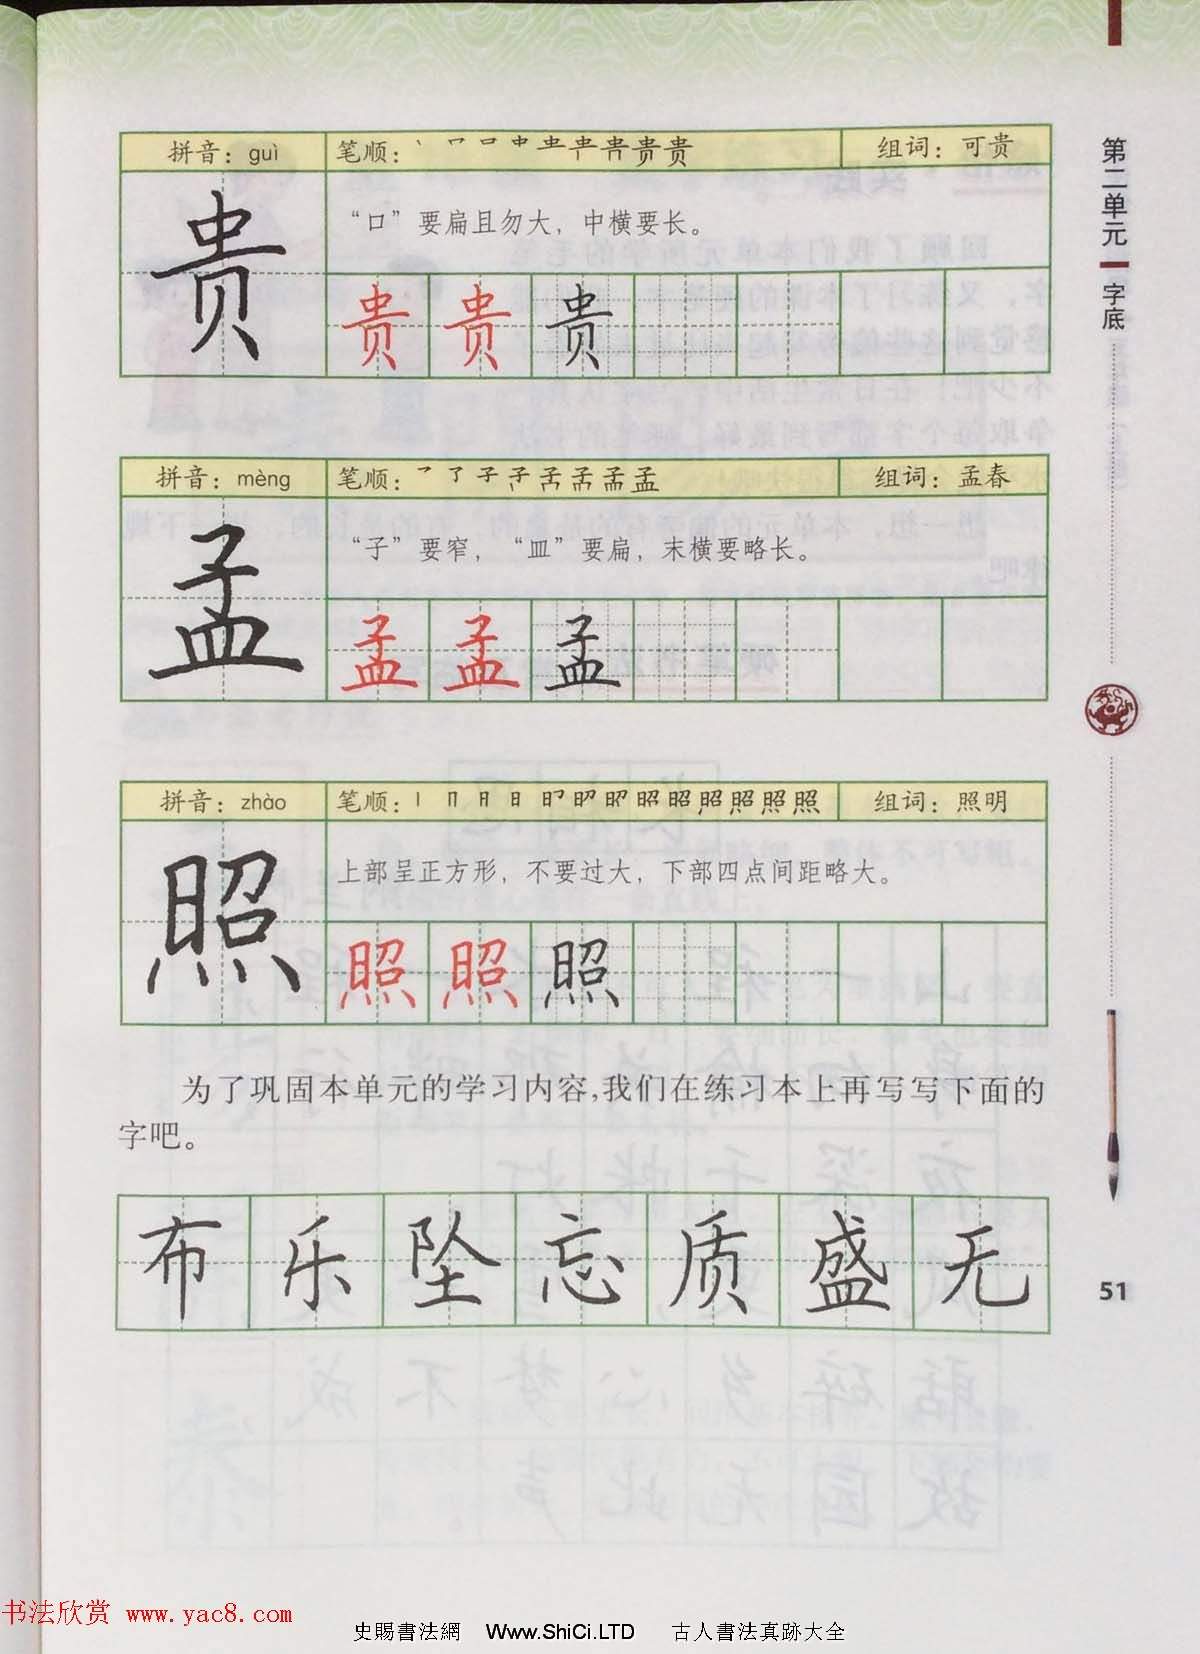 拼音：guì 笔顺： 组词：可贵
贵
“口”要扁且勿大，中横要长。
贵 贵 贵
拼音：mèng 笔顺： 组词：孟春
孟
“子”要窄，“皿”要扁，末横要略长。
孟 孟 孟
拼音：zhào 笔顺： 组词：照明
照
上部呈正方形，不要过大，下部四点间距略大。
照 照 照
为了巩固本单元的学习内容，我们在练习本上再写写下面的
字吧。
布 乐 坠 忘 质 盛 无
第二单元 字底
51
书法欣赏 www.yac8.com
史賜書法網 Www.ShiCi.LTD 古人書法真跡大全